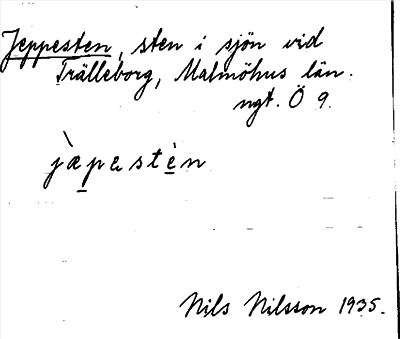 Jeppesten, sten i sjön vid
Trälleborg, Malmöhus län.
ngt. Ö 9.
jæ̀pestèn
Nils Nilsson 1935.